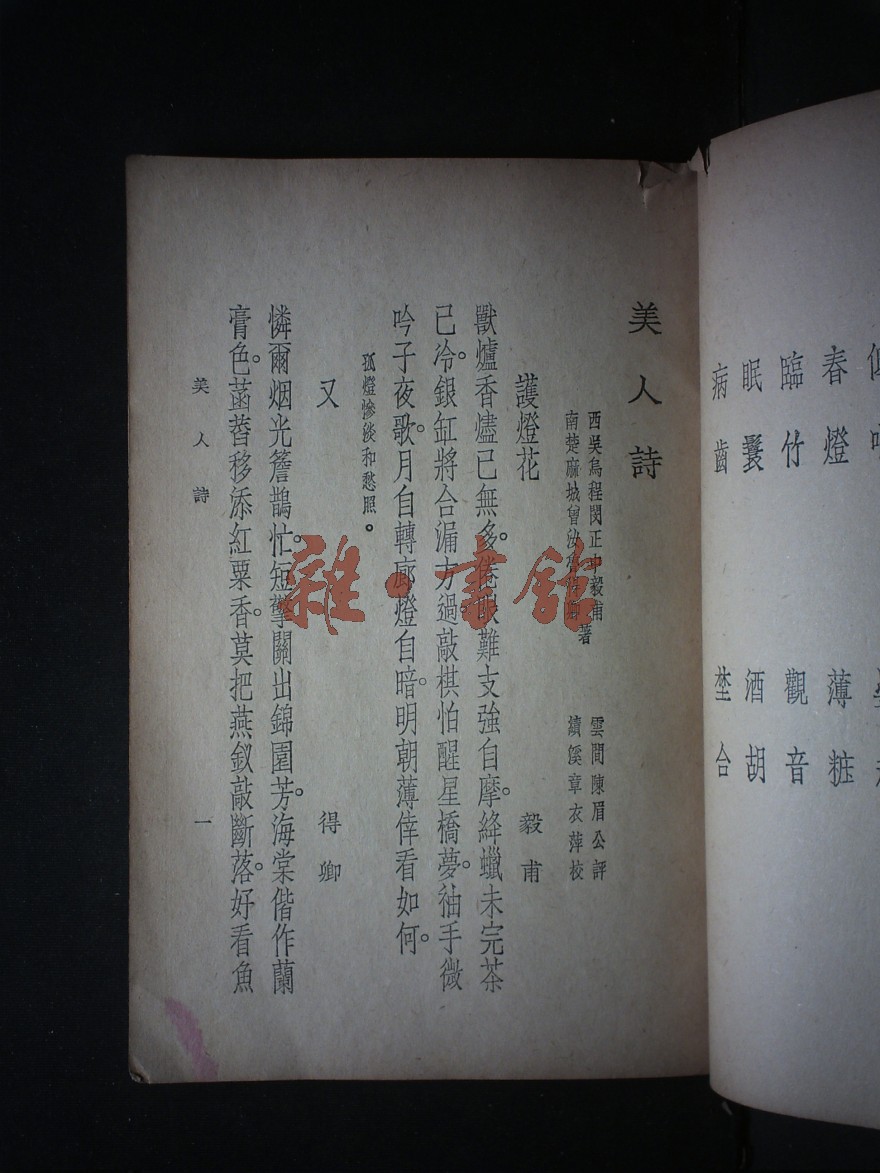 美人詩
西吳烏程閔正中毅甫
南楚麻城曾汝 卿
著
雲間陳眉公評
績溪章衣萍校
護燈花
毅甫
獸爐香燼已無多。倦眼難支強自摩。絳蠟未完茶
已冷。銀缸將合漏方過。敲棋怕醒星橋夢。袖手微
吟子夜歌。月自轉廊燈自暗。明朝薄倖看如何。
孤燈慘淡和愁照。
又
得卿
憐爾烟光簷鵲忙。短擎關出錦園芳。海棠偕作蘭
膏色。菡萏移添紅粟香。莫把燕釵敲斷落。好看魚
美人詩
一
春燈
薄粧
臨竹
觀音
眠鬟
酒胡
病齒
坐台
雜·書館